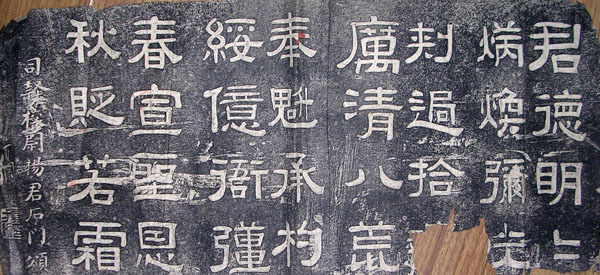 君德明=
炳煥彌光
刾過拾
厲清八荒
奉魁承杓
綏億衙彊
春宣聖恩
秋貶若霜
司隸校尉楊君石門頌